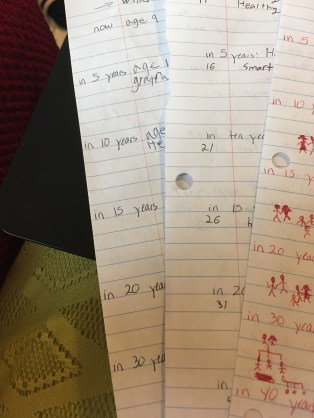 now age 9
in 5 years age
graph
in 10 years age
He
in 15 years
in 20 yea
in 30 yea
Health
in 5 years: H
16 Smart
in ten ye
21
in 15
26 h
in 2
31
in
in 5
in 10 y
in 15 ye
in 20 yea
in 30 year
in 40 years